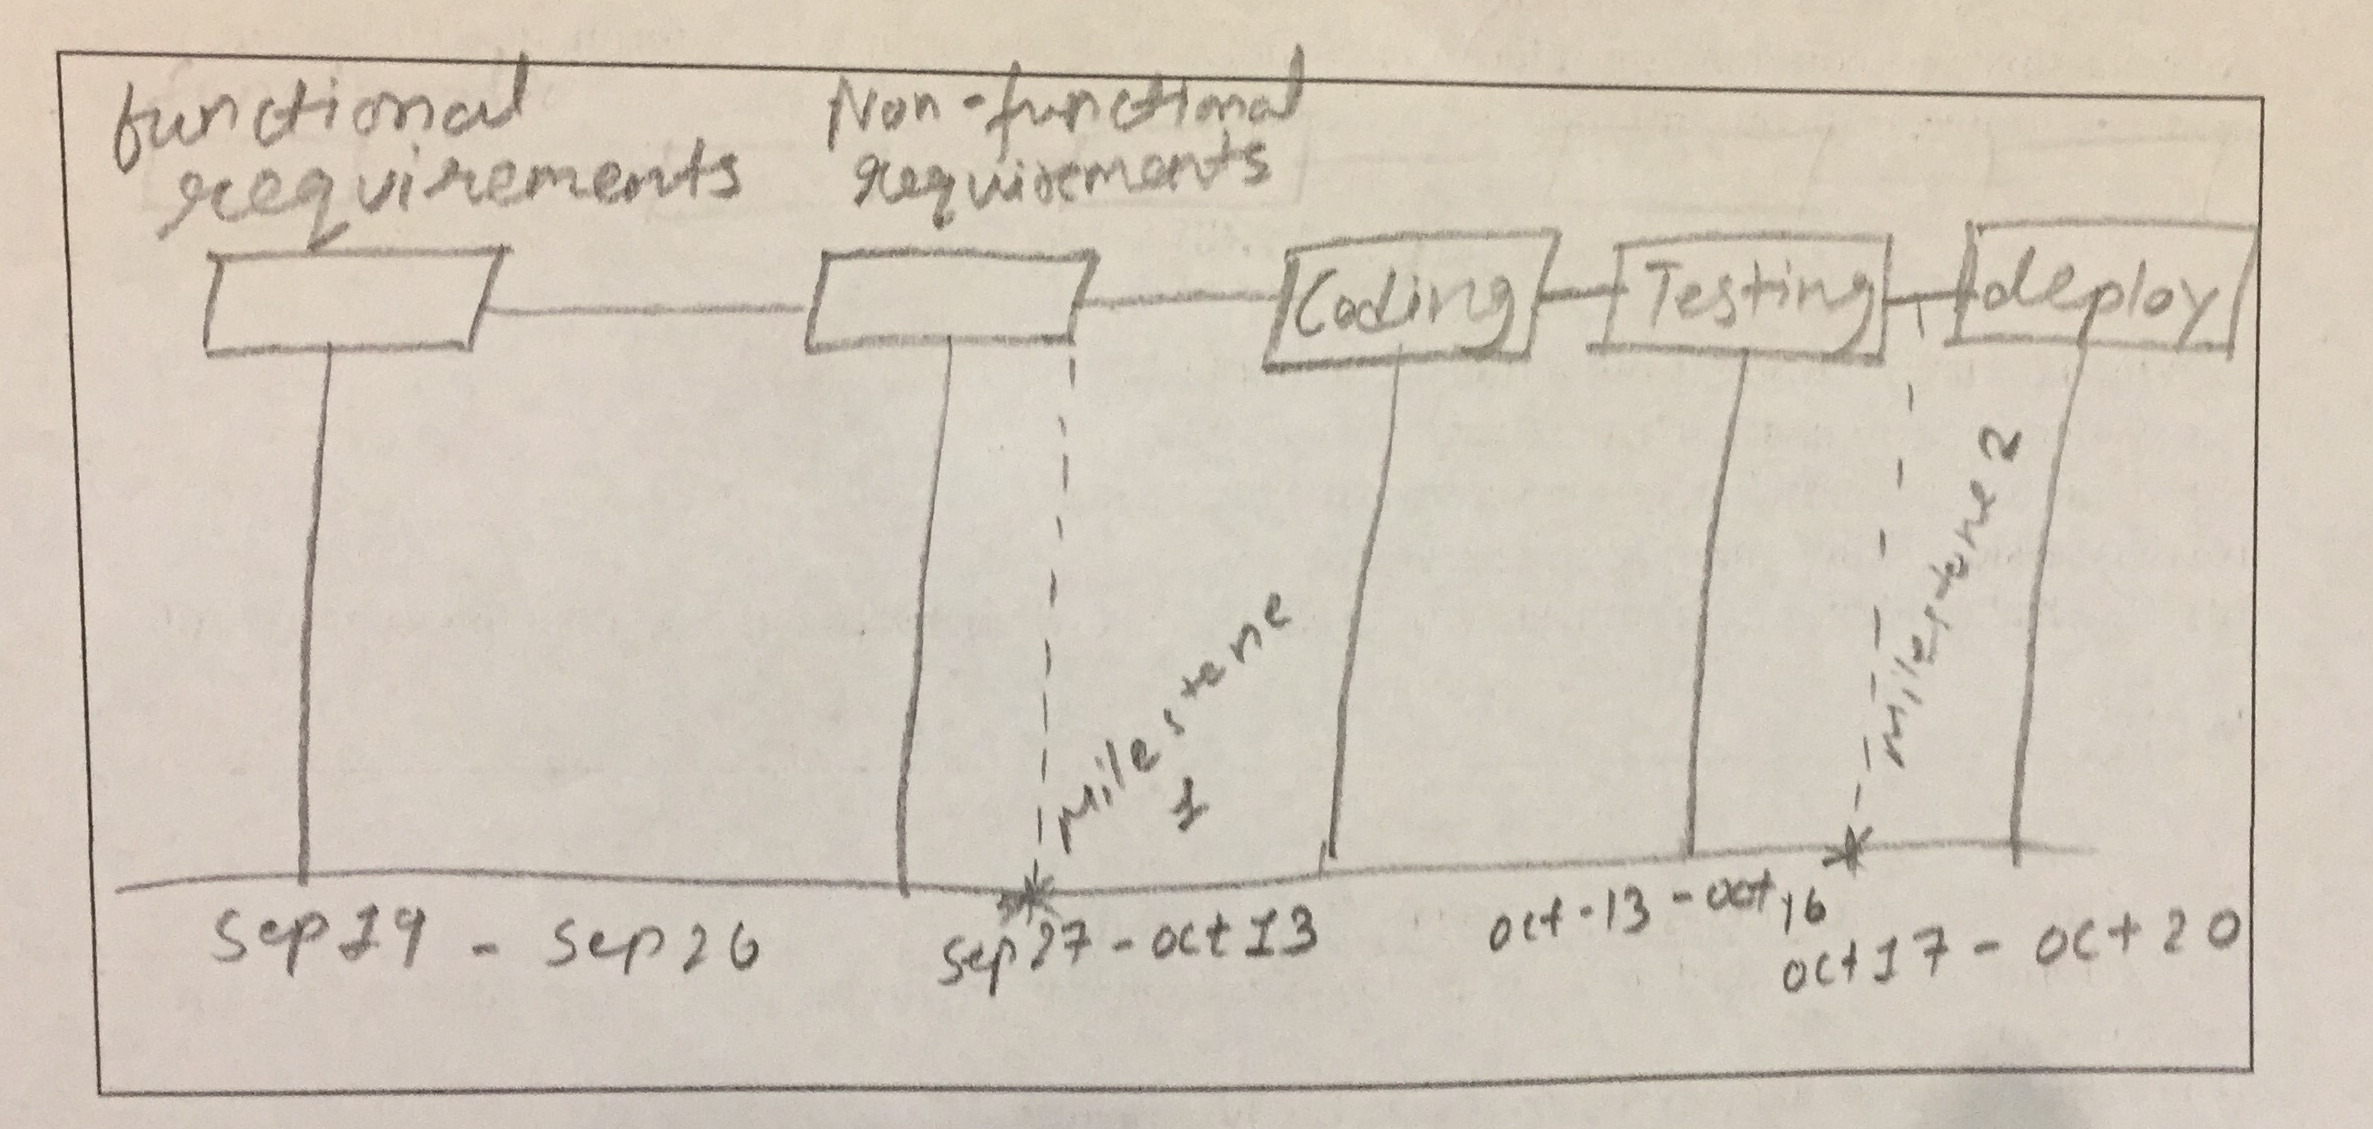 functional
requirements
Non-functional
requirements
Coding
Testing
deploy
Milestone
1
Milestone 2
Sep 19 - Sep 26
Sep 27 - oct 13
oct-13 - oct 16
oct 17 - oct 20